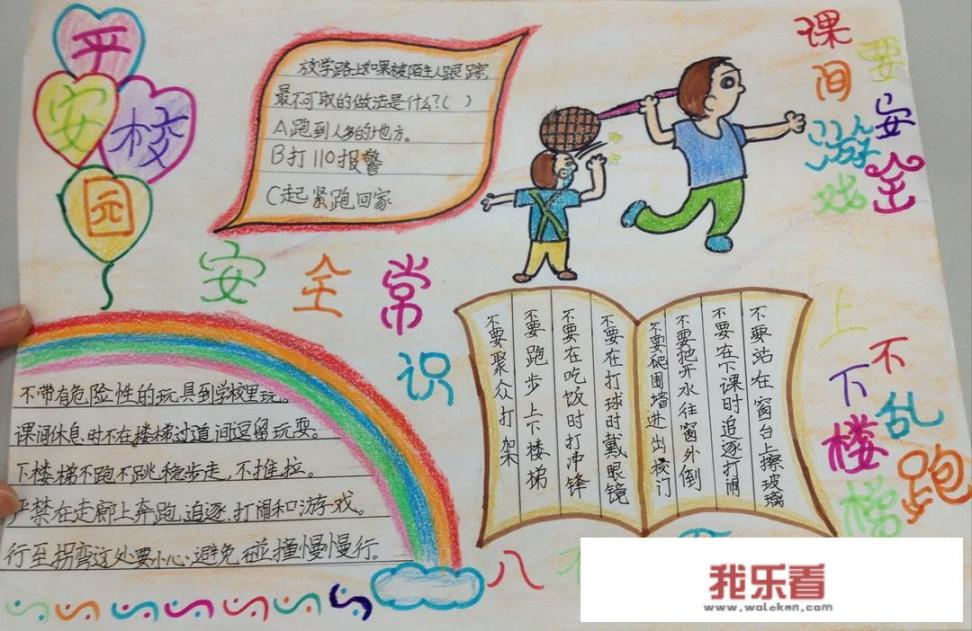 平
安校
园
放学路上如果被陌生人跟踪
最不可取的做法是什么?( )
A跑到人多的地方。
B打110报警
C赶紧跑回家
课间游戏
要安全
安全常识
不带有危险性的玩具到学校里玩。
课间休息时不在楼梯过道间逗留玩耍。
下楼梯不跑不跳稳步走,不推拉。
严禁在走廊上奔跑、追逐、打闹和游戏。
行至拐弯这处要小心、避免碰撞慢慢行。
不要站在窗台上擦玻璃
不要在下课时追逐打闹
不要把开水往窗外倒
不要爬围墙进出校门
不要在打球时戴眼镜
不要在吃饭时打冲锋
不要跑步上下楼梯
不要聚众打架
上下楼梯
不乱跑
八
我乐看
www.woleken.com